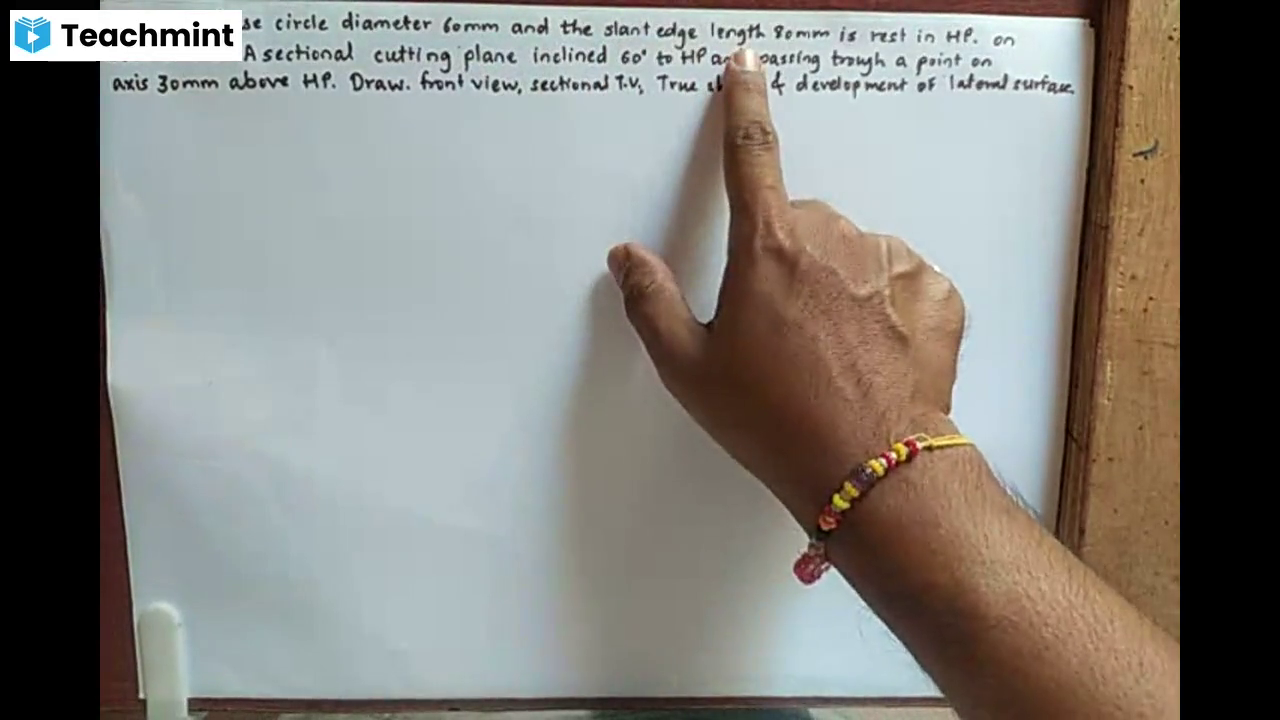 Teachmint
se circle diameter 60mm and the slant edge length 80mm is rest in HP. on
A sectional cutting plane inclined 60° to HP passing trough a point on
axis 30mm above HP. Draw. front view, sectional T.V, True & development of lateral surface.